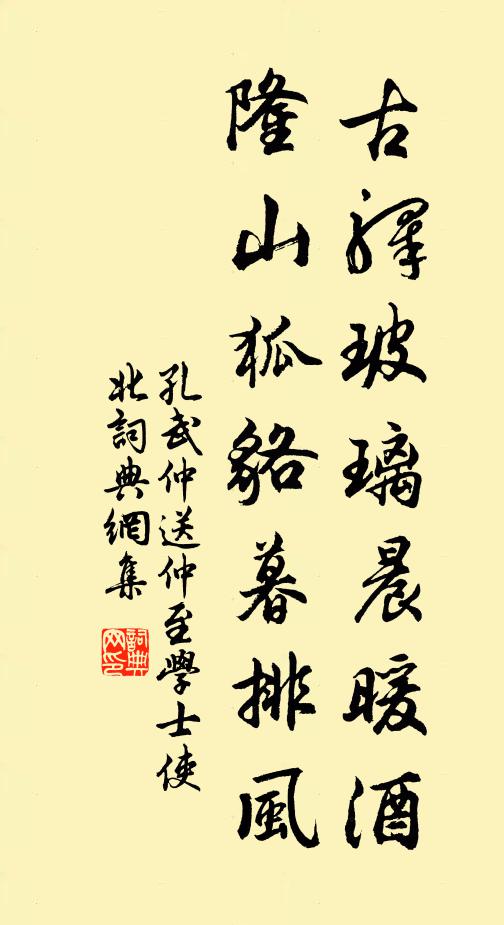 古驛玻璃晨暖酒
隆山狐貉暮排風
孔武仲送仲至學士使
北詞典網集
詞典
网印